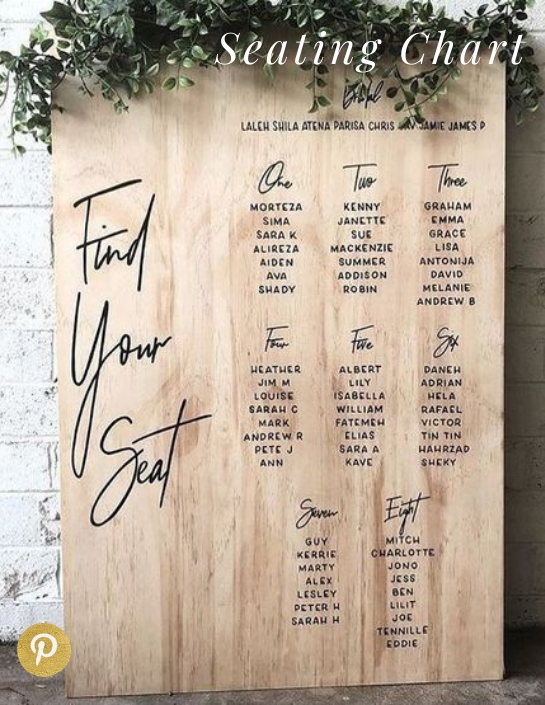 Seating Chart
Bridal
LALEH SHILA ATENA PARISA CHRIS JAMIE JAMES P
Find
Your
Seat
One
MORTEZA
SIMA
SARA K
ALIREZA
AIDEN
AVA
SHADY
Two
KENNY
JANETTE
SUE
MACKENZIE
SUMMER
ADDISON
ROBIN
Three
GRAHAM
EMMA
GRACE
LISA
ANTONIJA
DAVID
MELANIE
ANDREW B
Four
HEATHER
JIM M
LOUISE
SARAH C
MARK
ANDREW R
PETE J
ANN
Five
ALBERT
LILY
ISABELLA
WILLIAM
FATEMEH
ELIAS
SARA A
KAVE
Six
DANEH
ADRIAN
HELA
RAFAEL
VICTOR
TIN TIN
HAHRZAD
SHEKY
Seven
GUY
KERRIE
MARTY
ALEX
LESLEY
PETER H
SARAH H
Eight
MITCH
CHARLOTTE
JONO
JESS
BEN
LILIT
JOE
TENNILLE
EDDIE